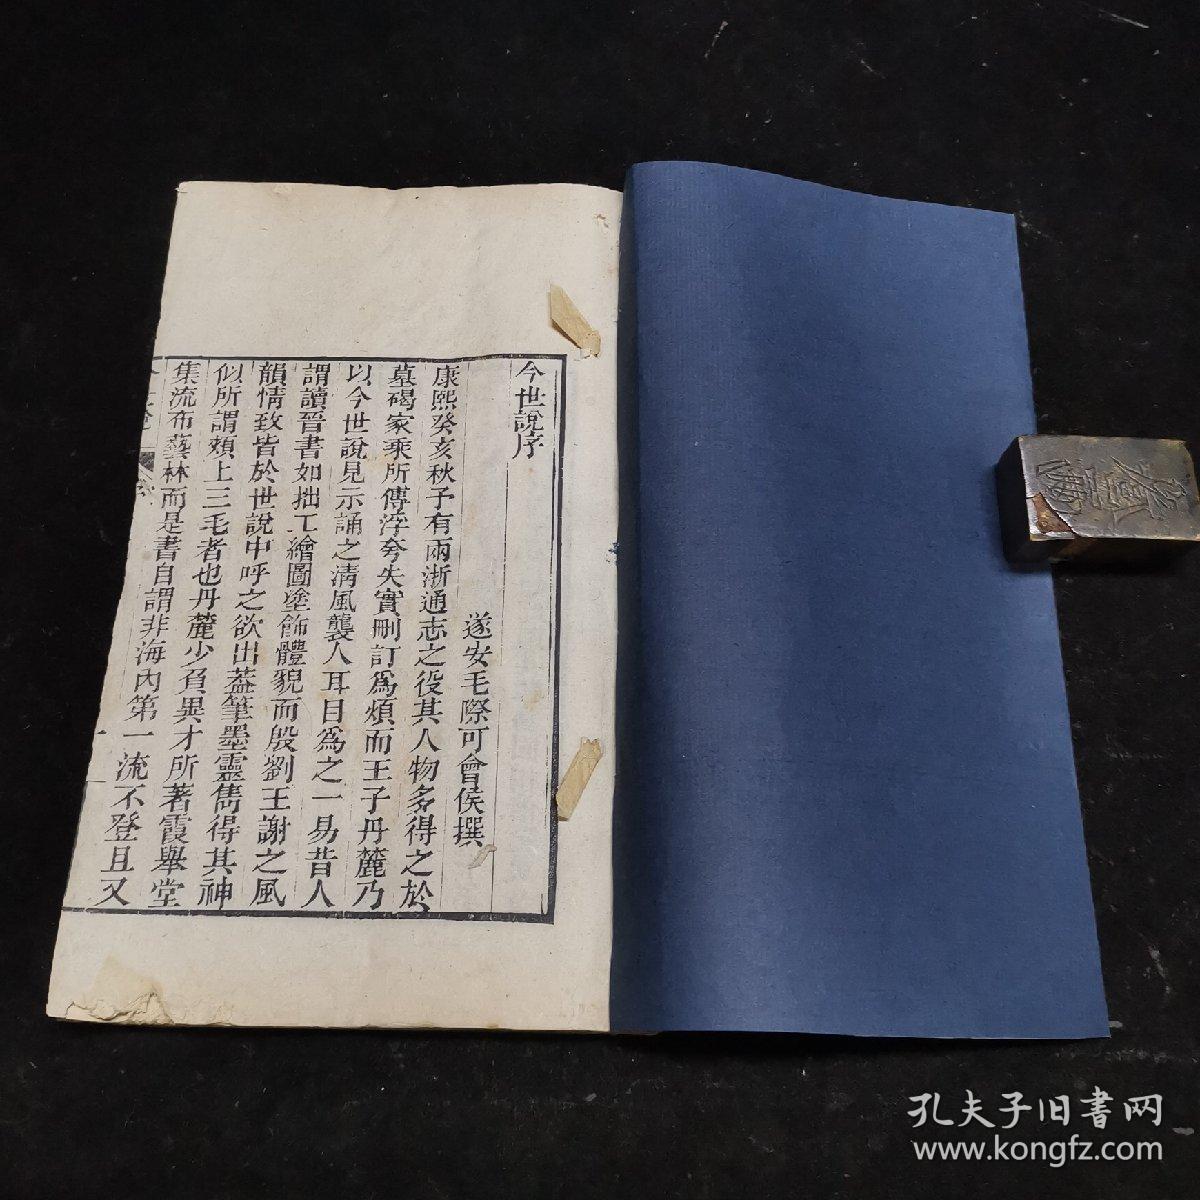 今世說序
遂安毛際可會侯撰
康熙癸亥秋予有兩浙通志之役其人物多得之於
墓碣家乘所傳浮夸失實刪訂爲煩而王子丹麓乃
以今世說見示誦之淸風襲人耳目爲之一易昔人
謂讀晉書如拙工繪圖塗飾體貌而殷劉王謝之風
韻情致皆於世說中呼之欲出蓋筆墨靈雋得其神
似所謂頰上三毛者也丹麓少負異才所著霞舉堂
集流布藝林而是書自謂非海內第一流不登且又
一
孔夫子旧書网
www.kongfz.com